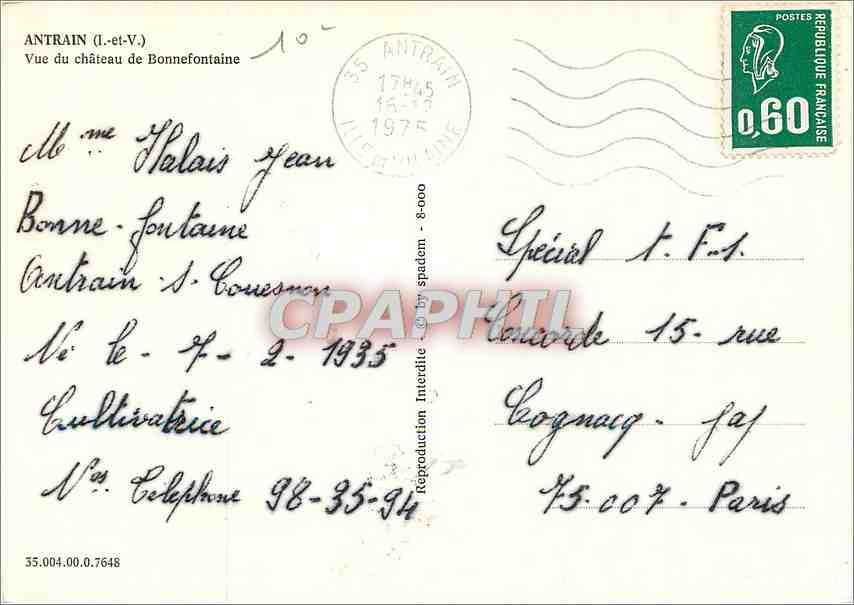 ANTRAIN (I.-et-V.)
Vue du château de Bonnefontaine
10-
35 ANTRAIN
17H45
16-12
1975
ILLE ET VILAINE
POSTES
RÉPUBLIQUE FRANÇAISE
0,60
Mme Halais Jean
Bonne-fontaine
Antrain-s-Couesnon
Né le - 7 - 2 - 1935
Cultivatrice
Nos Télephone 98-35-94
Reproduction Interdite - © by spadem - 8-000
CPAPHIL
Spécial t. F-1.
Concorde 15- rue
Cognacq - Jay
75.007- Paris
35.004.00.0.7648